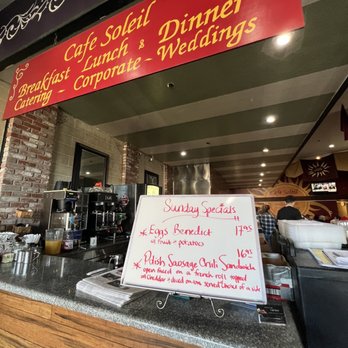 Cafe Soleil
Breakfast Lunch & Dinner
Catering - Corporate - Weddings
Sunday Specials
* Eggs Benedict 17.95
w/ fruit + potatoes
16.95
* Polish Sausage Chili Sandwich
open faced on a french roll topped
w/ cheddar + diced onions served choice of side